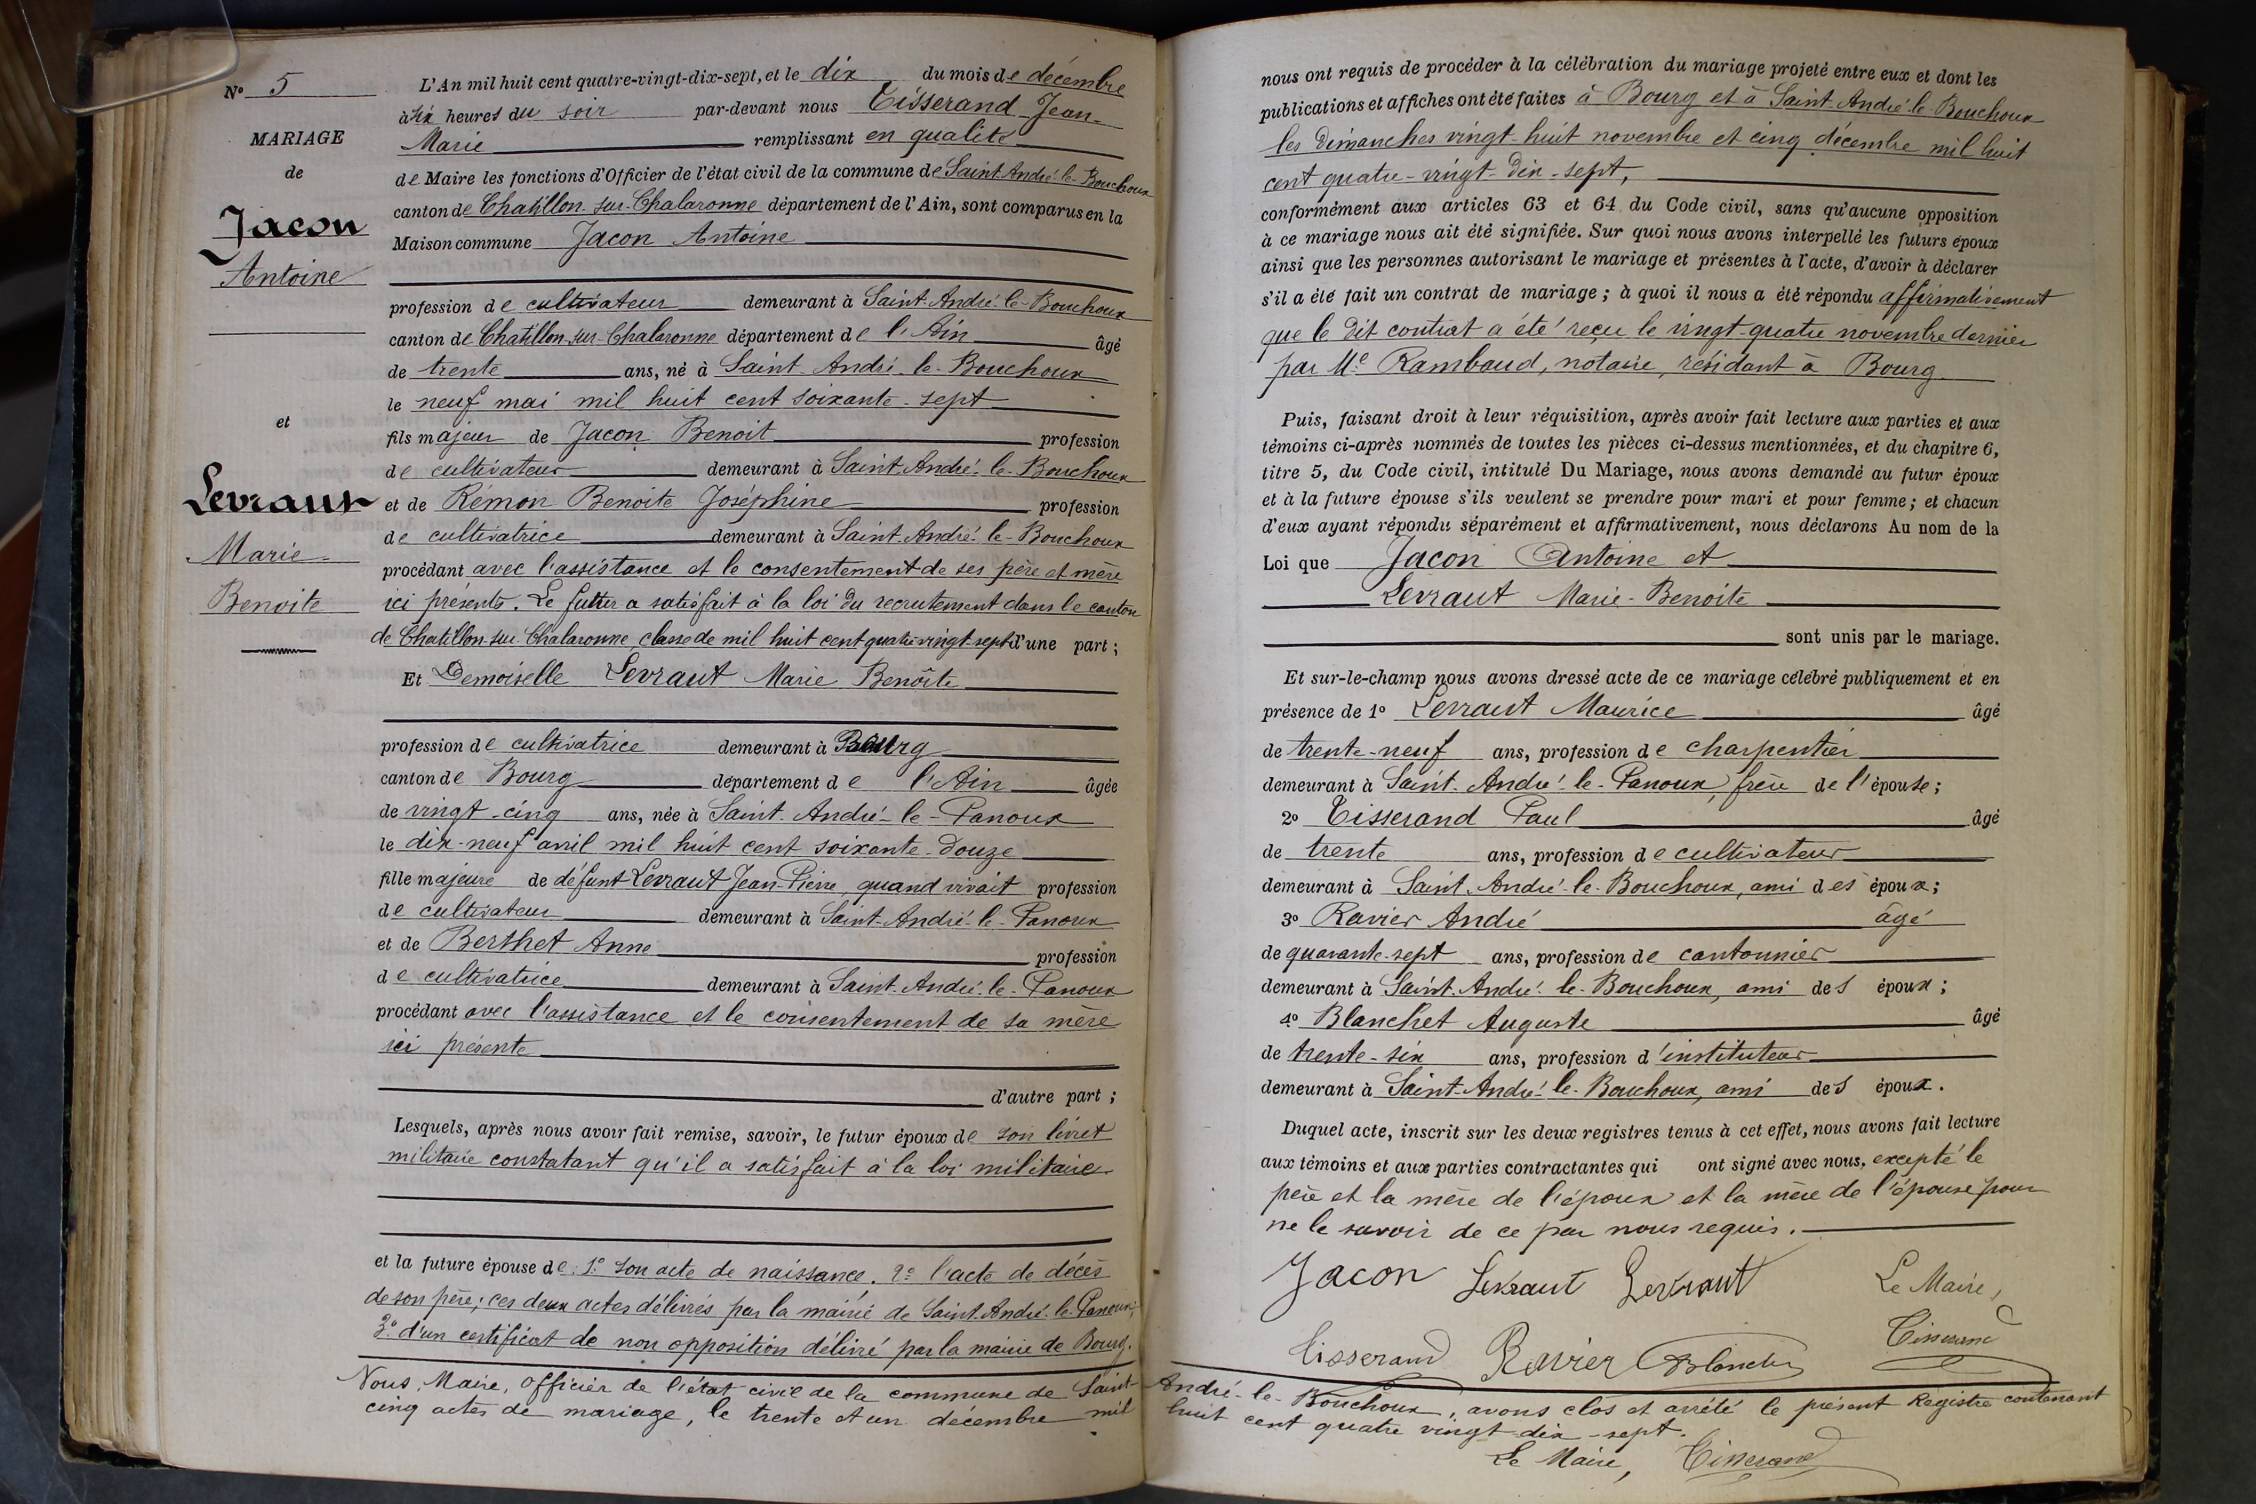 N° 5
MARIAGE
de
Jacon
Antoine
et
Levraut
Marie
Benoite
L'An mil huit cent quatre-vingt-dix-sept, et le dix du mois de décembre
à six heures du soir par-devant nous Tisserand Jean-
Marie remplissant en qualité
de Maire les fonctions d'Officier de l'état civil de la commune de Saint-André-le-Bouchoux
canton de Chatillon-sur-Chalaronne département de l'Ain, sont comparus en la
Maison commune Jacon Antoine
profession de cultivateur demeurant à Saint-André-le-Bouchoux
canton de Chatillon-sur-Chalaronne département de l'Ain âgé
de trente ans, né à Saint-André-le-Bouchoux
le neuf mai mil huit cent soixante-sept
fils majeur de Jacon Benoit profession
de cultivateur demeurant à Saint-André-le-Bouchoux
et de Rémon Benoite Joséphine profession
de cultivatrice demeurant à Saint-André-le-Bouchoux
procédant avec l'assistance et le consentement de ses père et mère
ici présents. Le futur a satisfait à la loi du recrutement dans le canton
de Chatillon-sur-Chalaronne classe de mil huit cent quatre vingt-sept d'une part ;
Et Demoiselle Levraut Marie Benoîte
profession de cultivatrice demeurant à Bourg
canton de Bourg département de l'Ain âgée
de vingt-cinq ans, née à Saint-André-le-Panoux
le dix-neuf avril mil huit cent soixante-douze
fille majeure de défunt Levraut Jean-Pierre, quand vivait profession
de cultivateur demeurant à Saint-André-le-Panoux
et de Berthet Anne profession
de cultivatrice demeurant à Saint-André-le-Panoux
procédant avec l'assistance et le consentement de sa mère
ici présente
d'autre part ;
Lesquels, après nous avoir fait remise, savoir, le futur époux de son livret
militaire constatant qu'il a satisfait à la loi militaire
et la future épouse de : 1° son acte de naissance. 2° l'acte de décès
de son père ; ces deux actes délivrés par la mairie de Saint-André-le-Panoux ;
3° d'un certificat de non opposition délivré par la mairie de Bourg.
nous ont requis de procéder à la célébration du mariage projeté entre eux et dont les
publications et affiches ont été faites à Bourg et à Saint-André-le-Bouchoux
les dimanches vingt-huit novembre et cinq décembre mil huit
cent quatre-vingt-dix-sept,
conformément aux articles 63 et 64 du Code civil, sans qu'aucune opposition
à ce mariage nous ait été signifiée. Sur quoi nous avons interpellé les futurs époux
ainsi que les personnes autorisant le mariage et présentes à l'acte, d'avoir à déclarer
s'il a été fait un contrat de mariage ; à quoi il nous a été répondu affirmativement
que le dit contrat a été reçu le vingt-quatre novembre dernier
par Me Rambaud, notaire, résidant à Bourg
Puis, faisant droit à leur réquisition, après avoir fait lecture aux parties et aux
témoins ci-après nommés de toutes les pièces ci-dessus mentionnées, et du chapitre 6,
titre 5, du Code civil, intitulé Du Mariage, nous avons demandé au futur époux
et à la future épouse s'ils veulent se prendre pour mari et pour femme ; et chacun
d'eux ayant répondu séparément et affirmativement, nous déclarons Au nom de la
Loi que Jacon Antoine et
Levraut Marie-Benoite
sont unis par le mariage.
Et sur-le-champ nous avons dressé acte de ce mariage célébré publiquement et en
présence de 1° Levraut Maurice âgé
de trente-neuf ans, profession de charpentier
demeurant à Saint-André-le-Panoux, frère de l'épouse ;
2° Tisserand Paul âgé
de trente ans, profession de cultivateur
demeurant à Saint-André-le-Bouchoux, ami des époux ;
3° Ravier André âgé
de quarante-sept ans, profession de cantonnier
demeurant à Saint-André-le-Bouchoux, ami des époux ;
4° Blanchet Auguste âgé
de trente-six ans, profession d'instituteur
demeurant à Saint-André-le-Bouchoux, ami des époux.
Duquel acte, inscrit sur les deux registres tenus à cet effet, nous avons fait lecture
aux témoins et aux parties contractantes qui ont signé avec nous, excepté le
père et la mère de l'époux et la mère de l'épouse pour
ne le savoir de ce par nous requis.
Jacon Levraut Levraut Le Maire,
Tisserand Ravier Blanchet Tisserand
Nous, Maire, officier de l'état civil de la commune de Saint-André-le-Bouchoux, avons clos et arrêté le présent Registre contenant
cinq actes de mariage, le trente et un décembre mil huit cent quatre vingt-dix-sept.
Le Maire, Tisserand